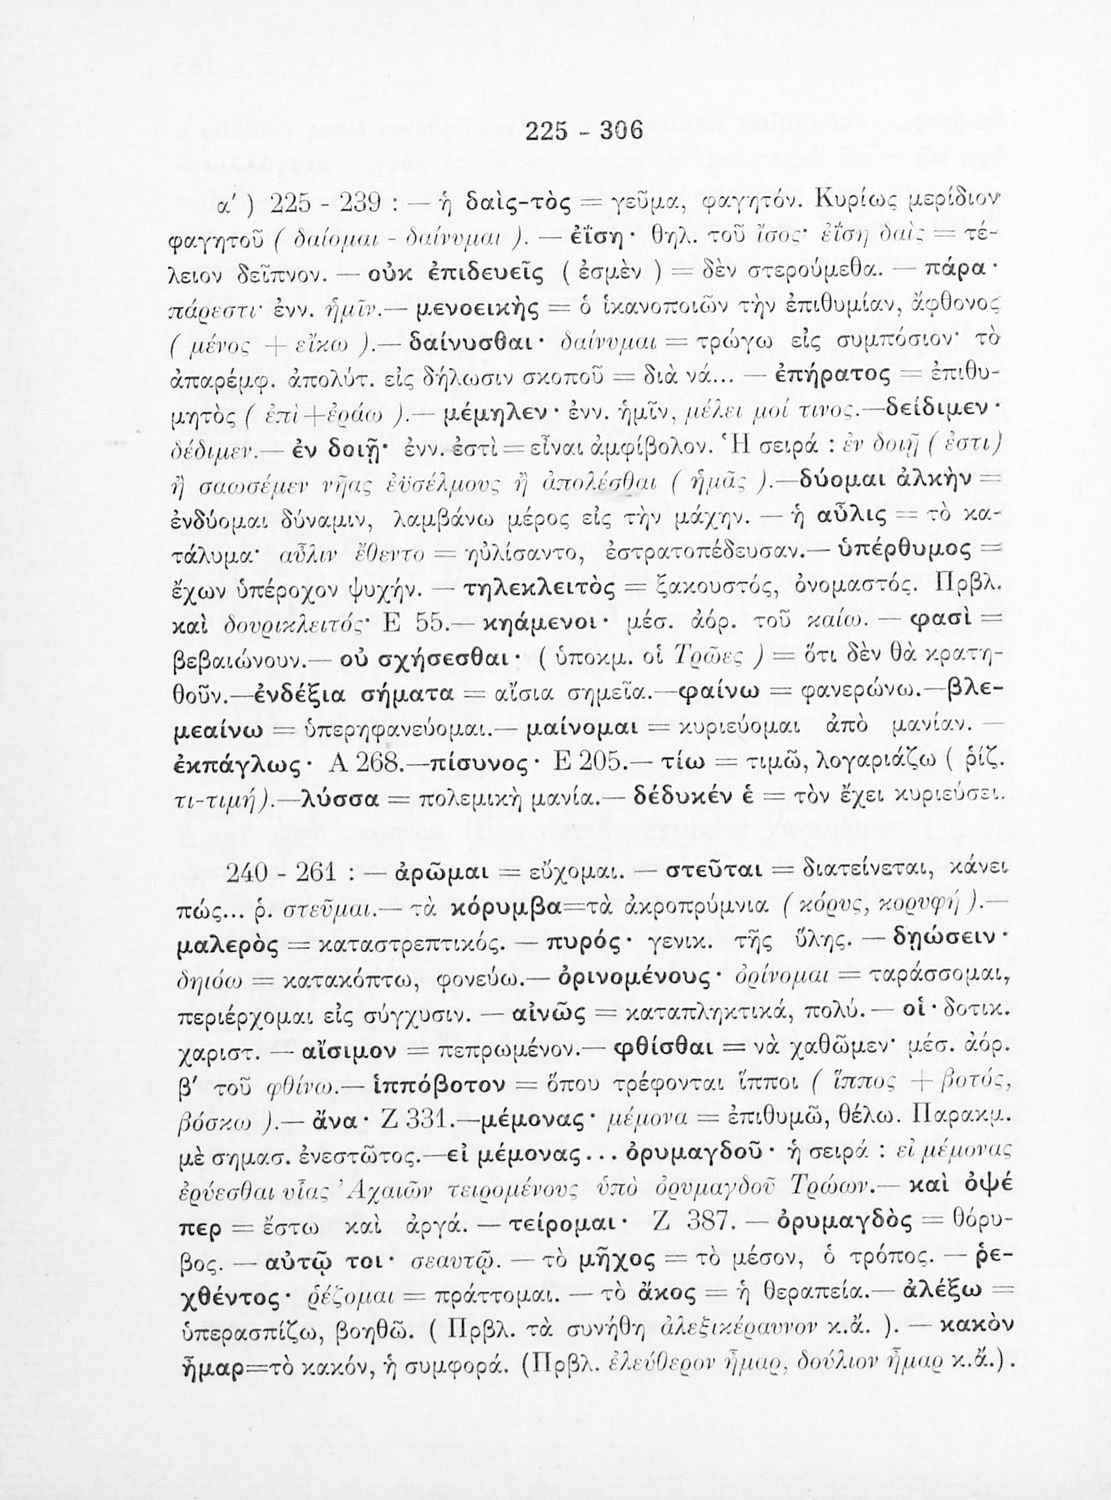 225 - 306
α′ ) 225 - 239 : — ἡ δαὶς-τὸς = γεῦμα, φαγητόν. Κυρίως μερίδιον
φαγητοῦ ( δαίομαι - δαίνυμαι ). — ἐΐση · θηλ. τοῦ ἴσος· ἐΐση δαὶς = τέ-
λειον δεῖπνον. — οὐκ ἐπιδευεῖς ( ἐσμὲν ) = δὲν στερούμεθα. — πάρα ·
πάρεστι· ἐνν. ἡμῖν.— μενοεικὴς = ὁ ἱκανοποιῶν τὴν ἐπιθυμίαν, ἄφθονος
( μένος + εἴκω ).— δαίνυσθαι · δαίνυμαι = τρώγω εἰς συμπόσιον· τὸ
ἀπαρέμφ. ἀπολύτ. εἰς δήλωσιν σκοποῦ = διὰ νά... — ἐπήρατος = ἐπιθυ-
μητὸς ( ἐπὶ+ἐράω ).— μέμηλεν · ἐνν. ἡμῖν, μέλει μοί τινος.—δείδιμεν ·
δέδιμεν.— ἐν δοιῇ· ἐνν. ἐστὶ = εἶναι ἀμφίβολον. Ἡ σειρά : ἐν δοιῇ ( ἐστι)
ἢ σαωσέμεν νῆας ἐϋσέλμους ἢ ἀπολέσθαι ( ἡμᾶς ).—δύομαι ἀλκὴν =
ἐνδύομαι δύναμιν, λαμβάνω μέρος εἰς τὴν μάχην. — ἡ αὖλις = τὸ κα-
τάλυμα· αὖλιν ἔθεντο = ηὐλίσαντο, ἐστρατοπέδευσαν.— ὑπέρθυμος =
ἔχων ὑπέροχον ψυχήν. — τηλεκλειτὸς = ξακουστός, ὀνομαστός. Πρβλ.
καὶ δουρικλειτός· Ε 55.— κηάμενοι · μέσ. ἀόρ. τοῦ καίω. — φασὶ =
βεβαιώνουν.— οὐ σχήσεσθαι · ( ὑποκμ. οἱ Τρῶες ) = ὅτι δὲν θὰ κρατη-
θοῦν.—ἐνδέξια σήματα = αἴσια σημεῖα.—φαίνω = φανερώνω.—βλε-
μεαίνω = ὑπερηφανεύομαι.— μαίνομαι = κυριεύομαι ἀπὸ μανίαν. —
ἐκπάγλως · Α 268.—πίσυνος · Ε 205.— τίω = τιμῶ, λογαριάζω ( ῥίζ.
τι-τιμή).—λύσσα = πολεμικὴ μανία.— δέδυκέν ἑ = τὸν ἔχει κυριεύσει.
240 - 261 : — ἀρῶμαι = εὔχομαι. — στεῦται = διατείνεται, κάνει
πώς... ῥ. στεῦμαι.— τὰ κόρυμβα=τὰ ἀκροπρύμνια ( κόρυς, κορυφή ).—
μαλερὸς = καταστρεπτικός. — πυρός · γενικ. τῆς ὕλης. — δῃώσειν ·
δηιόω = κατακόπτω, φονεύω.— ὀρινομένους · ὀρίνομαι = ταράσσομαι,
περιέρχομαι εἰς σύγχυσιν. — αἰνῶς = καταπληκτικά, πολύ. — οἱ · δοτικ.
χαριστ. — αἴσιμον = πεπρωμένον.— φθίσθαι = νὰ χαθῶμεν· μέσ. ἀόρ.
β′ τοῦ φθίνω.— ἱππόβοτον = ὅπου τρέφονται ἵπποι ( ἵππος + βοτός,
βόσκω ).— ἄνα · Ζ 331.—μέμονας · μέμονα = ἐπιθυμῶ, θέλω. Παρακμ.
μὲ σημασ. ἐνεστῶτος.—εἰ μέμονας... ὀρυμαγδοῦ · ἡ σειρά : εἰ μέμονας
ἐρύεσθαι υἷας Ἀχαιῶν τειρομένους ὑπὸ ὀρυμαγδοῦ Τρώων.— καὶ ὀψέ
περ = ἔστω καὶ ἀργά. — τείρομαι · Ζ 387. — ὀρυμαγδὸς = θόρυ-
βος. — αὐτῷ τοι · σεαυτῷ. — τὸ μῆχος = τὸ μέσον, ὁ τρόπος. — ῥε-
χθέντος · ῥέζομαι = πράττομαι. — τὸ ἄκος = ἡ θεραπεία.— ἀλέξω =
ὑπερασπίζω, βοηθῶ. ( Πρβλ. τὰ συνήθη ἀλεξικέραυνον κ.ἄ. ). — κακὸν
ἦμαρ=τὸ κακόν, ἡ συμφορά. (Πρβλ. ἐλεύθερον ἦμαρ, δούλιον ἦμαρ κ.ἄ.).